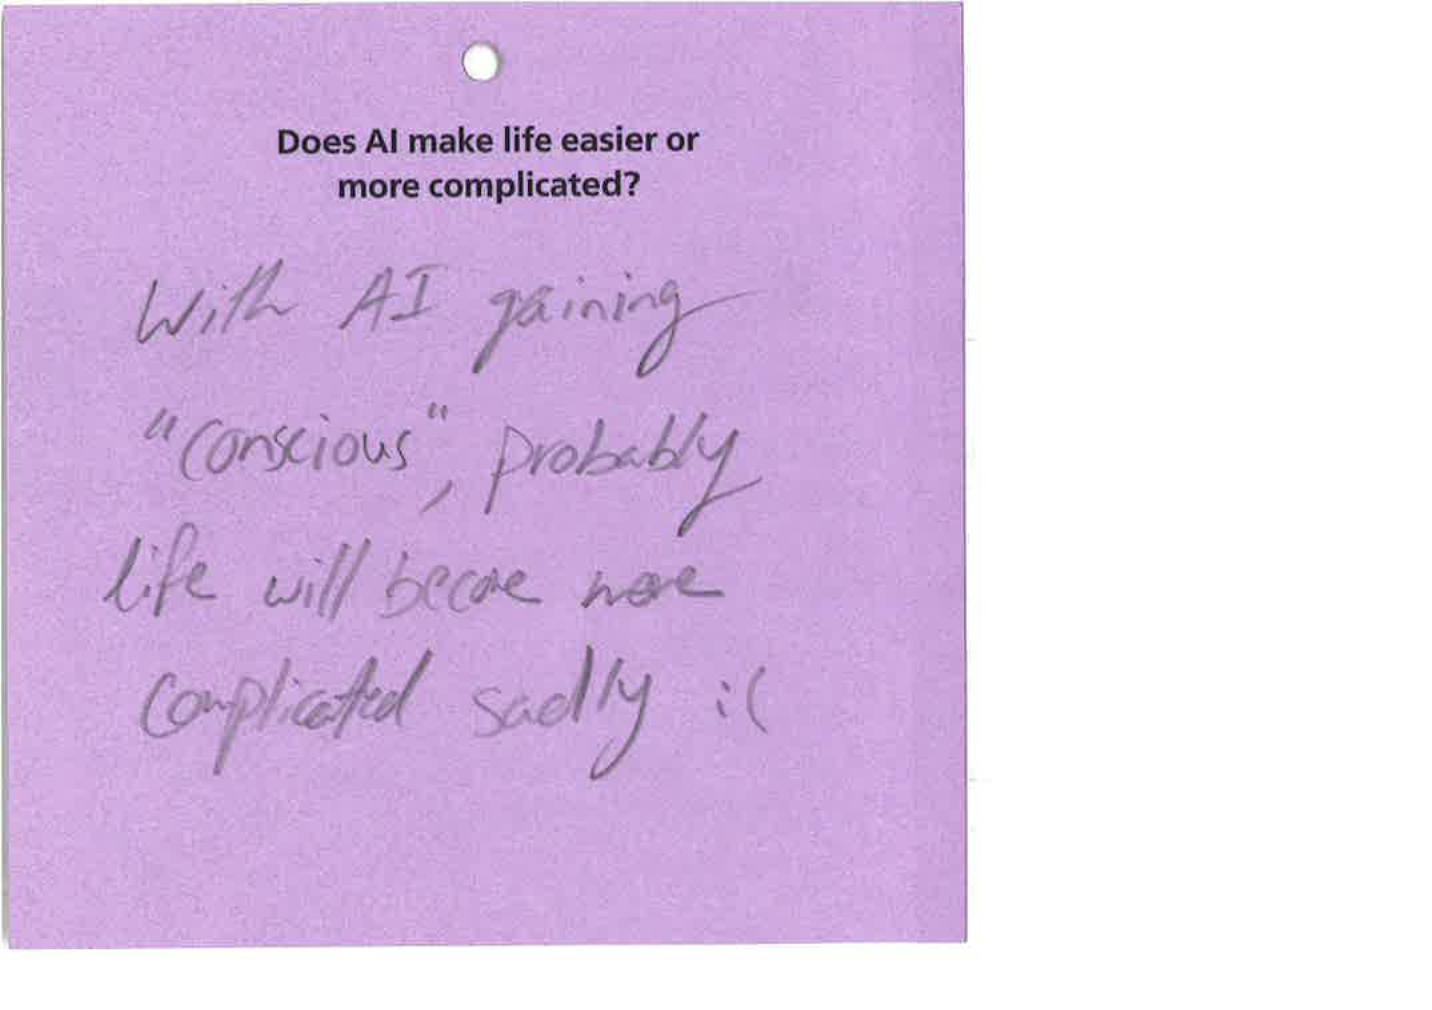 Does AI make life easier or
more complicated?
With AI gaining
"conscious", probably
life will become more
complicated sadly :(